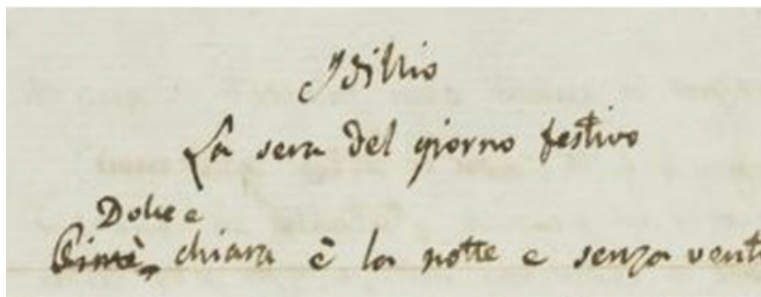 Idillio
La sera del giorno festivo
Dolce e
Oimè, chiara è la notte e senza vent